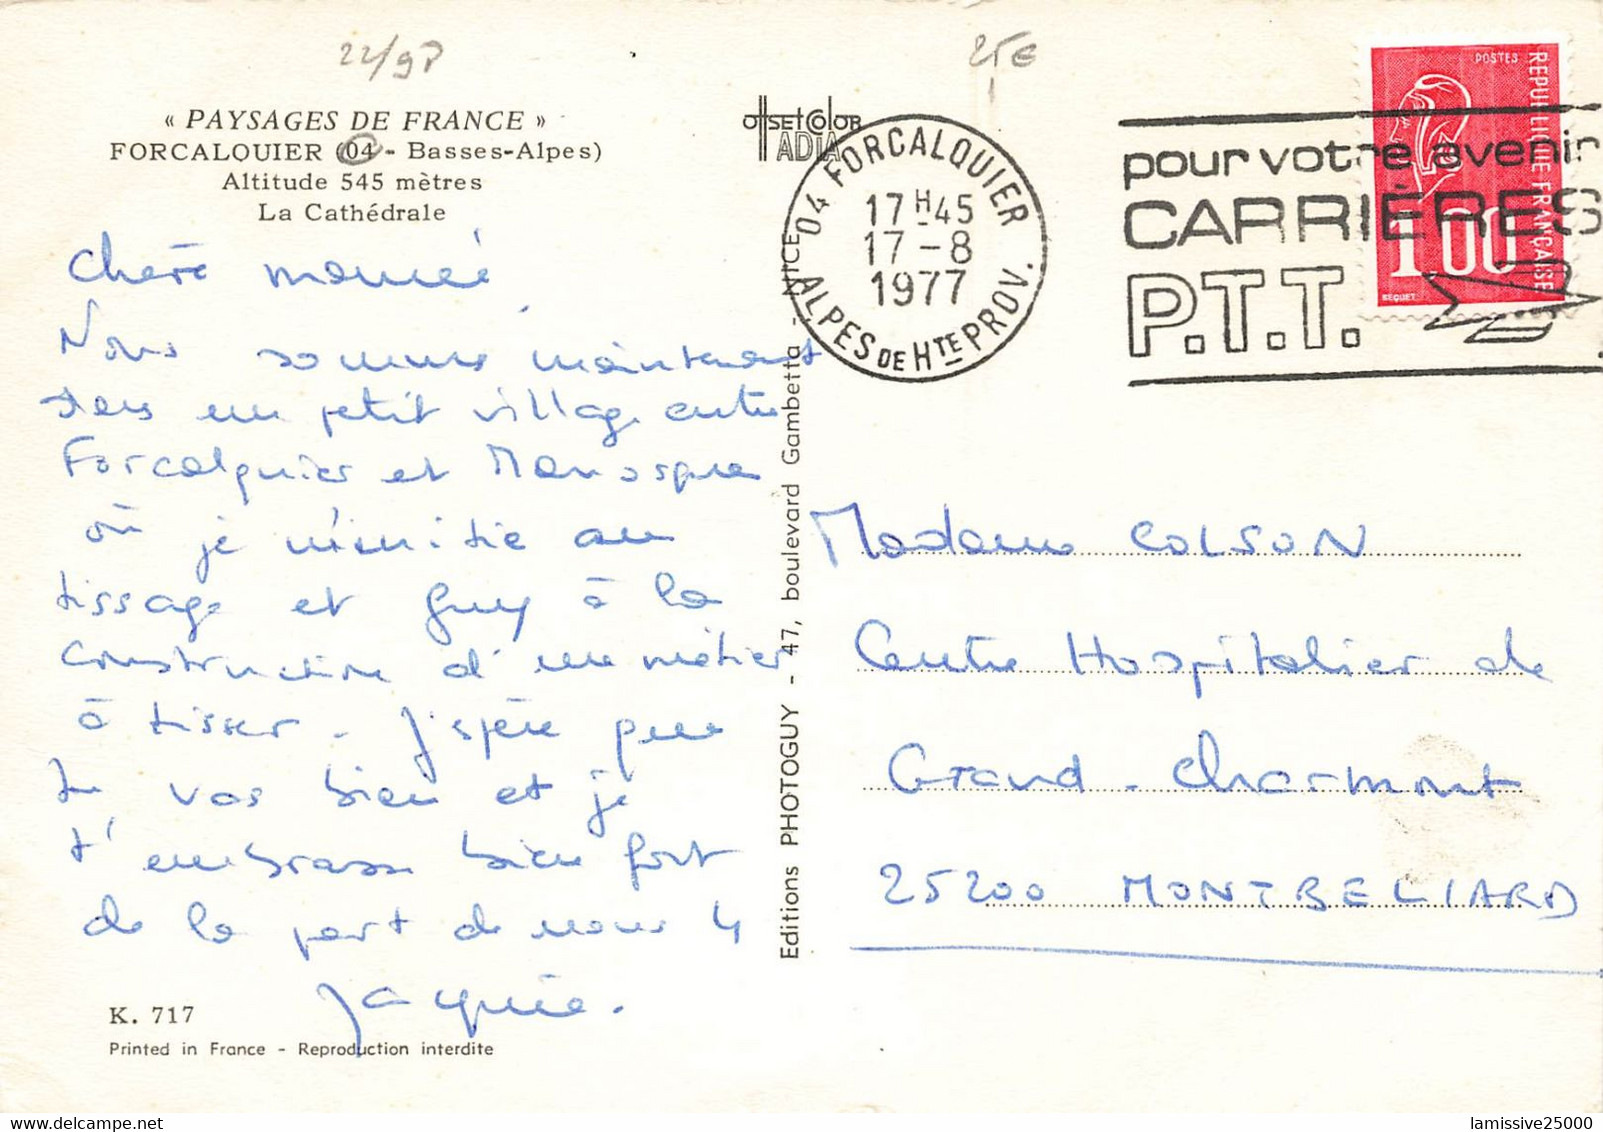 22/98
25€
« PAYSAGES DE FRANCE »
FORCALQUIER (04 - Basses-Alpes)
Altitude 545 mètres
La Cathédrale
Chère mémé
Nous sommes maintenant
dans un petit village entre
Forcalquier et Manosque
où je m'initie au
tissage et Guy à la
construction d'un métier
à tisser. J'espère que
tu vas bien et je
t'embrasse bien fort
de la part de nous 4
Jacquie.
K. 717
Printed in France - Reproduction interdite
Editions PHOTOGUY - 47, boulevard Gambetta - NICE
OffSET COlOR
ADIA
04 FORCALQUIER
17 H 45
17 - 8
1977
ALPES DE HTE PROV.
pour votre avenir
CARRIÈRES
P.T.T.
POSTES
REPUBLIQUE FRANÇAISE
1,00
BEQUET
Madame COLSON
Centre Hospitalier de
Grand-Charmont
25200 MONTBELIARD
lamissive25000